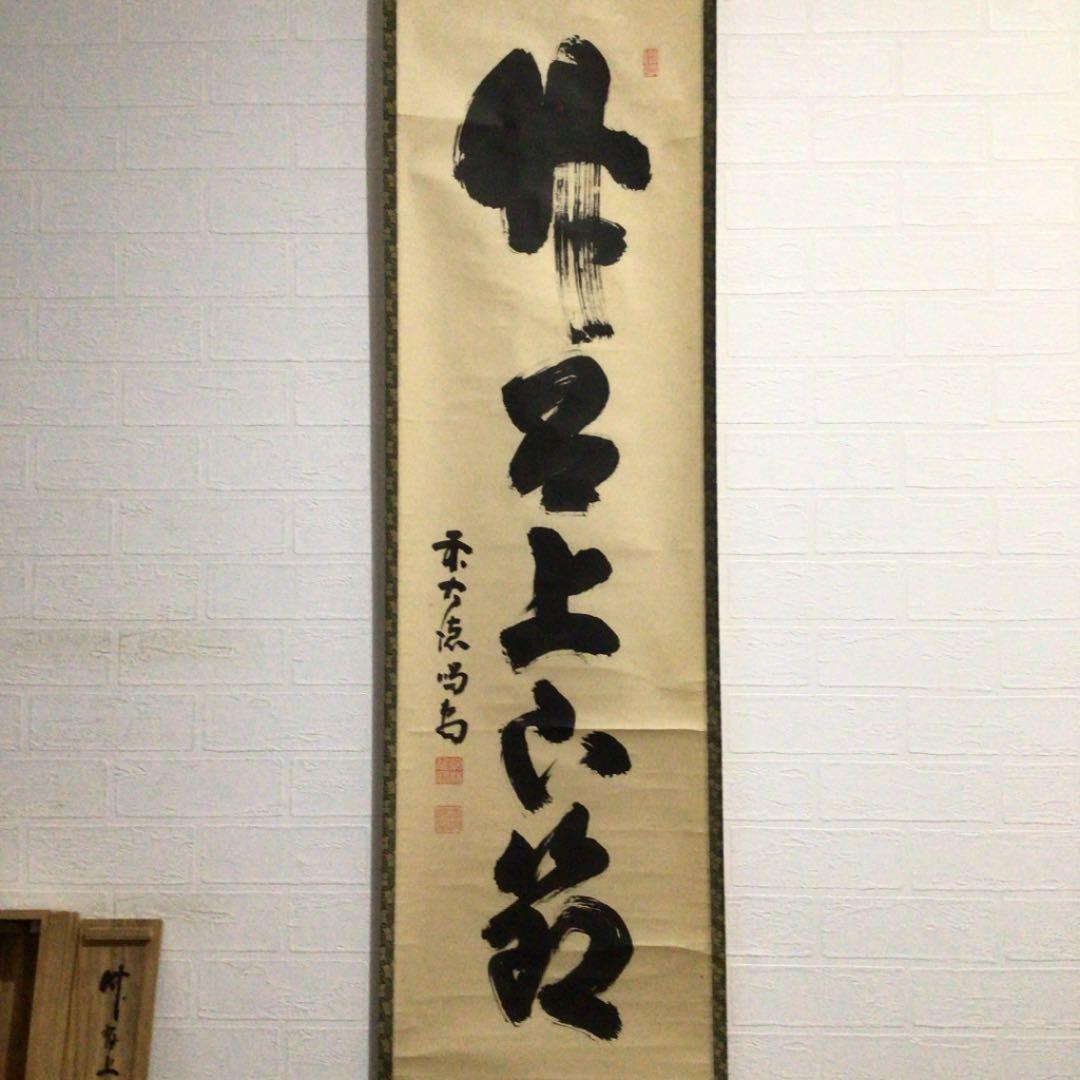 竹有上下節
大徳
竹有上